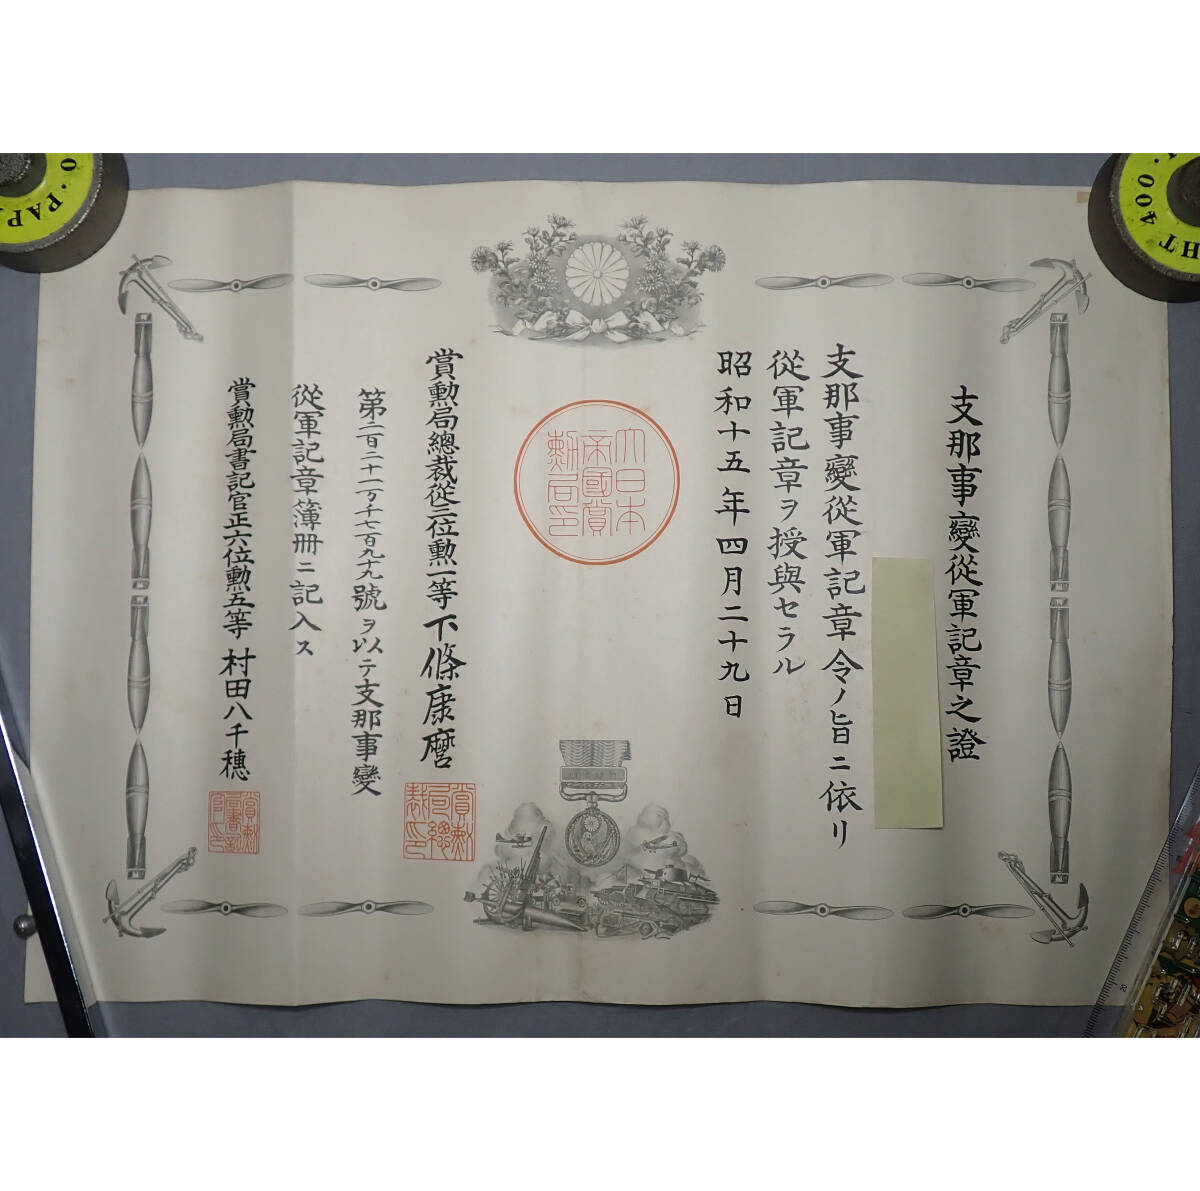 支那事變從軍記章之證
支那事變從軍記章令ノ旨ニ依リ
從軍記章ヲ授與セラル
昭和十五年四月二十九日
大日本
帝國賞
勲局印
賞勲局總裁從三位勲一等下條康麿
賞勲
局總
裁印
第二百二十一万千七百九十九號ヲ以テ支那事變
從軍記章簿册ニ記入ス
賞勲局書記官正六位勲五等村田八千穗
400